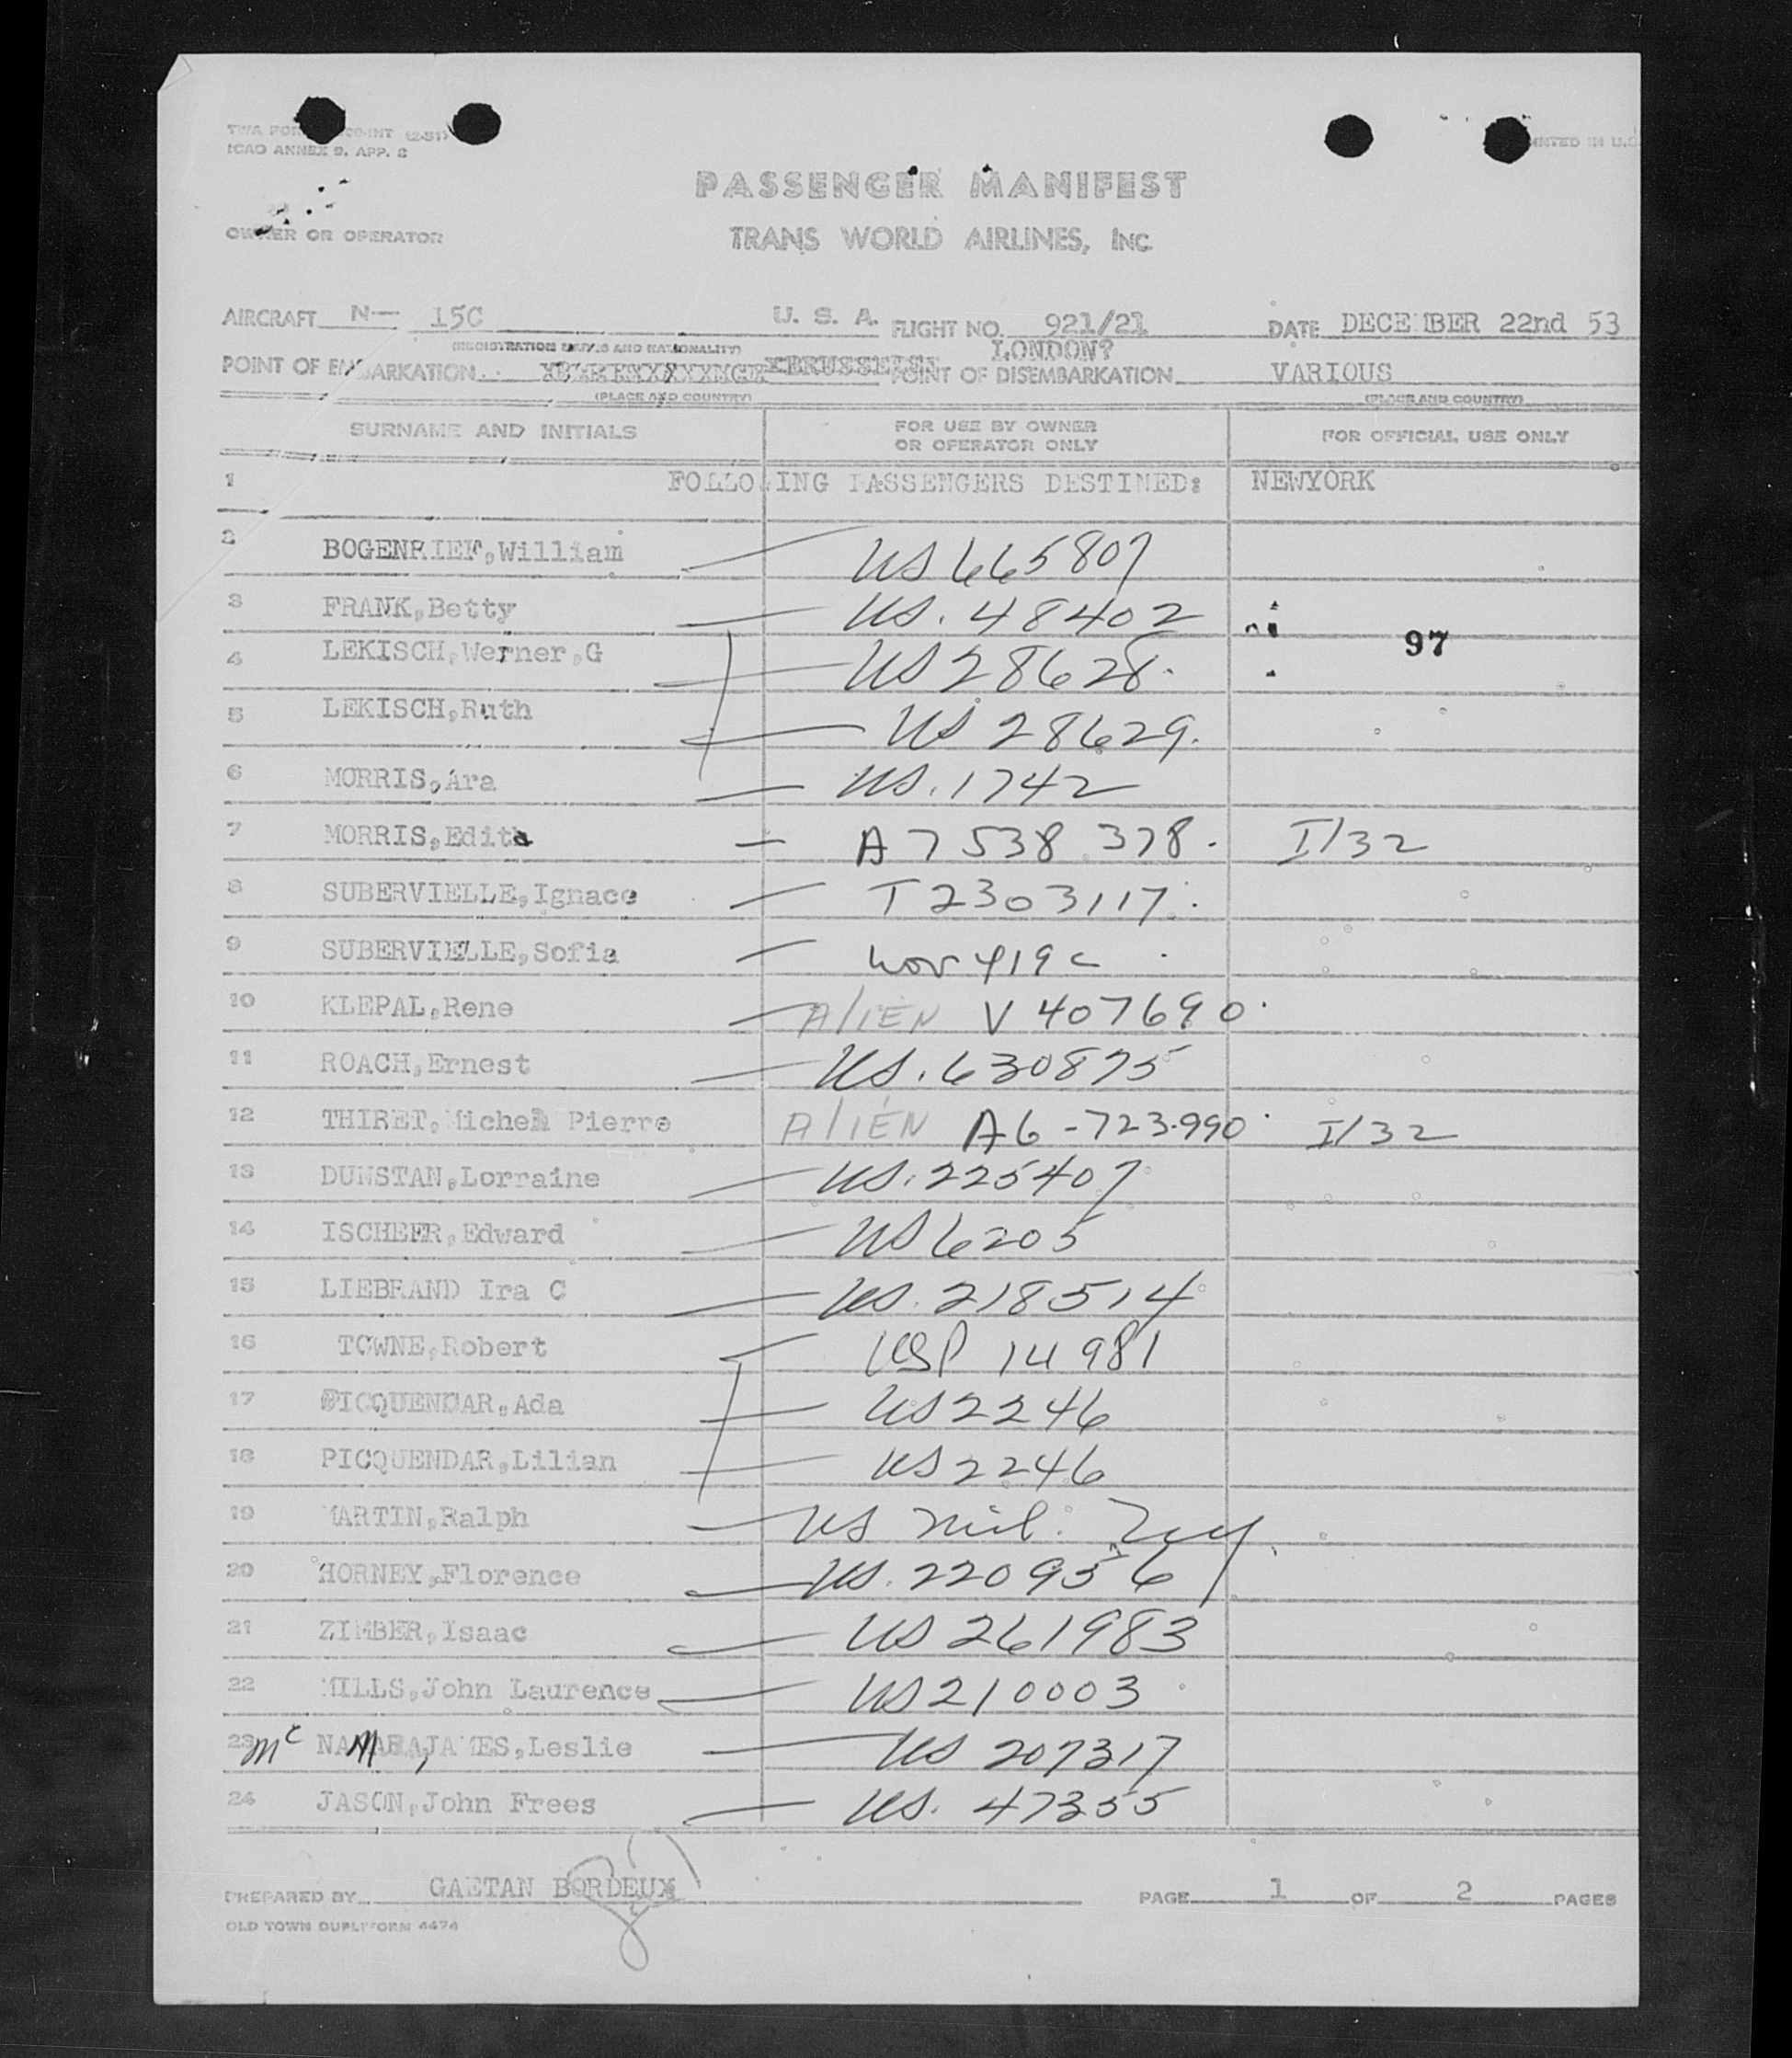 TWA FOR
ICAO ANNEX 9. APP. 2
PRINTED IN U.S
PASSENGER MANIFEST
OWNER OR OPERATOR
TRANS WORLD AIRLINES, INC
AIRCRAFT N— 15C U. S. A. FLIGHT NO. 921/21 DATE DECEMBER 22nd 53
(REGISTRATION MARKS AND NATIONALITY) LONDON?
POINT OF EMBARKATION BRUSSELS POINT OF DISEMBARKATION VARIOUS
(PLACE AND COUNTRY) (PLACE AND COUNTRY)
SURNAME AND INITIALS FOR USE BY OWNER OR OPERATOR ONLY FOR OFFICIAL USE ONLY
1 FOLLOWING PASSENGERS DESTINED: NEWYORK
2 BOGENRIEF,William US 665807
3 FRANK,Betty US. 48402
97
4 LEKISCH,Werner,G US 28628.
5 LEKISCH,Ruth US 28629.
6 MORRIS,Ara US. 1742
7 MORRIS,Edith A7 538 378. I/32
8 SUBERVIELLE,Ignace T2303117.
9 SUBERVIELLE,Sofia
10 KLEPAL,Rene ALIEN V 407690.
11 ROACH,Ernest US. 630875
12 THIRET,Michel Pierre ALIEN A6-723.990. I/32
13 DUNSTAN,Lorraine US. 225407
14 ISCHEER,Edward US 6205
15 LIEBRAND Ira C US. 218514
16 TOWNE,Robert USP 14981
17 PICQUENDAR,Ada US 2246
18 PICQUENDAR,Lilian US 2246
19 MARTIN,Ralph US mil.
20 HORNEY,Florence US. 220956
21 ZIMBER,Isaac US 261983
22 MILLS,John Laurence US 210003
23 Mc NAMARA,JAMES,Leslie US 207317
24 JASON,John Frees US. 47355
PREPARED BY GAETAN BORDEUX PAGE 1 OF 2 PAGES
OLD TOWN DUPLIFORM 4474